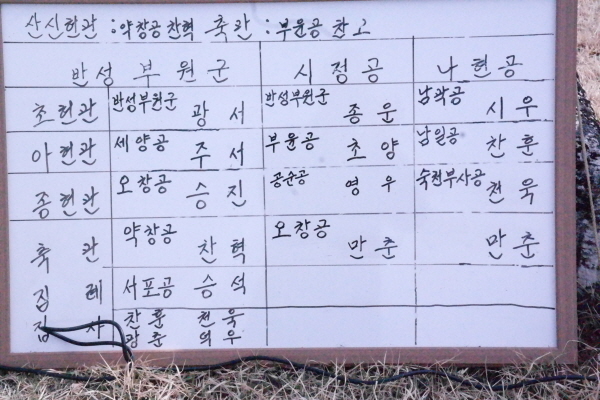 산신헌관 : 약창공 찬혁 축관 : 부윤공 찬고
반성부원군 시정공 나헌공
초헌관 반성부원군 광서 반성부원군 종윤 남곽공 시우
아헌관 세양공 주서 부윤공 초양 남일공 찬훈
종헌관 오창공 승진 공순공 영우 숙천부사공 천욱
축관 약창공 찬혁 오창공 만춘 만춘
집례 서포공 승석
집사 찬훈 천욱
광춘 의우